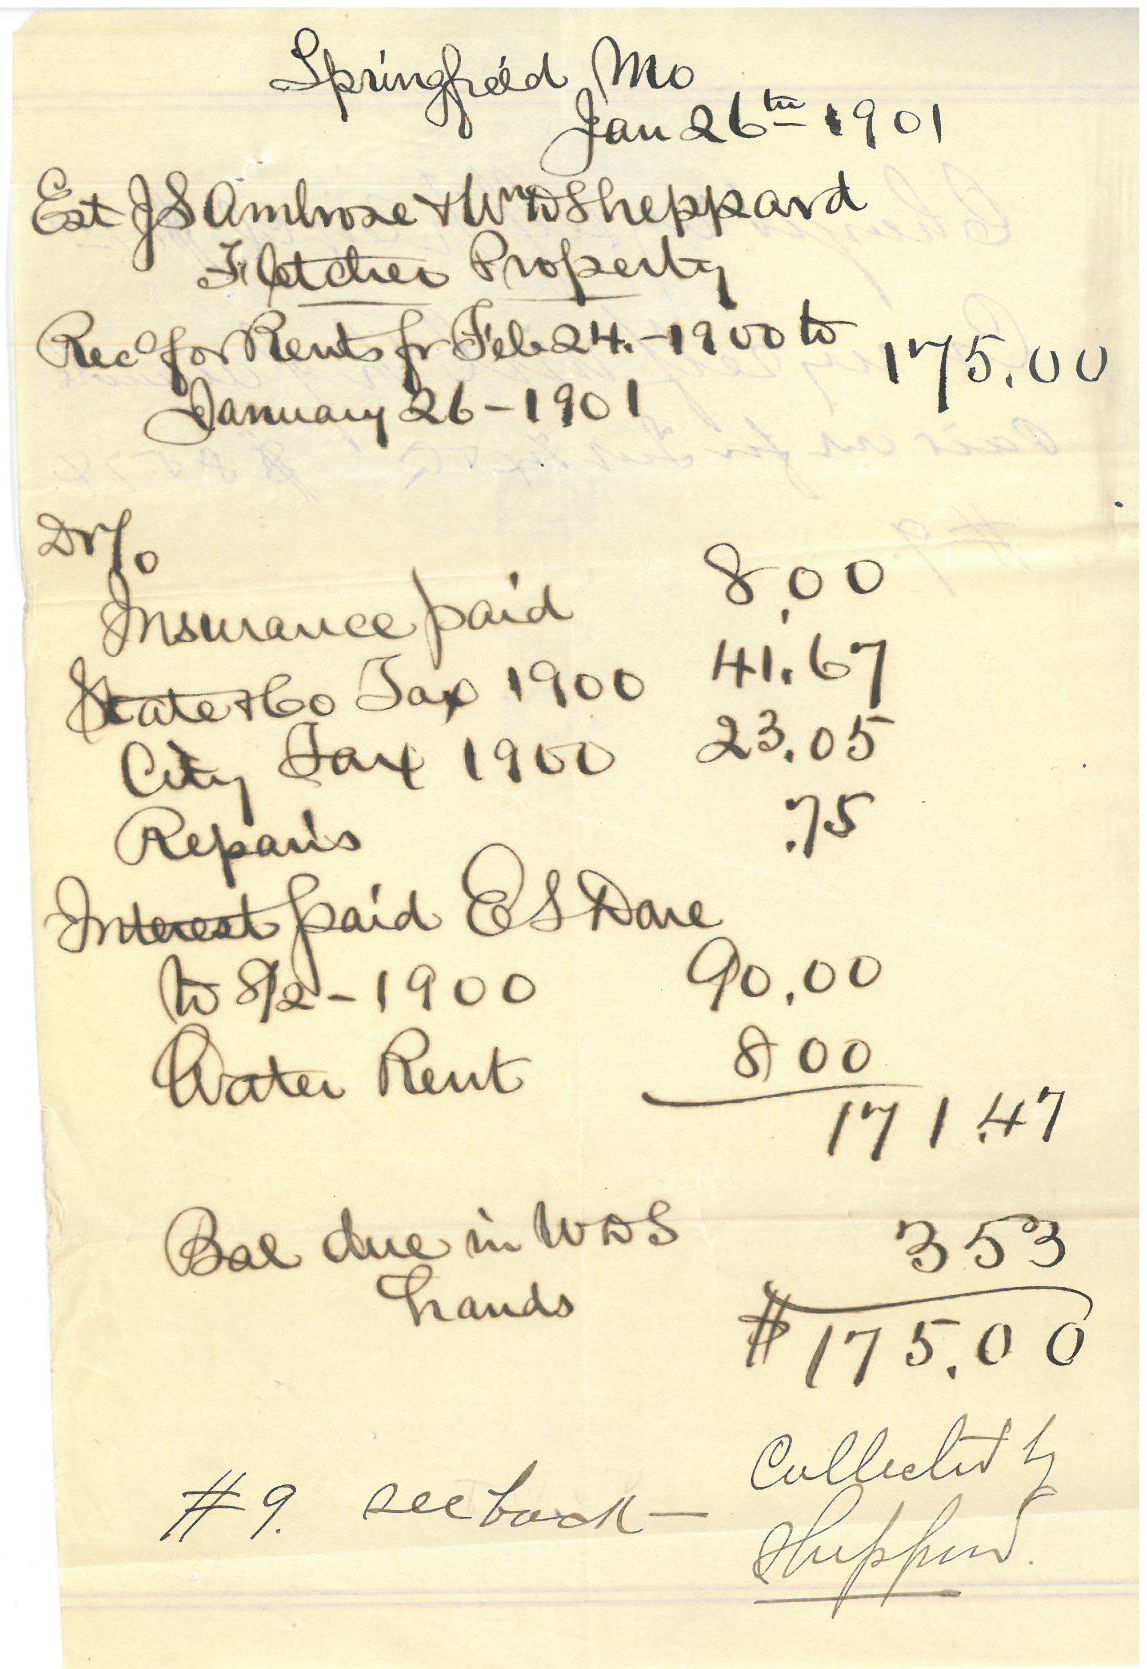 Springfield Mo
Jan 26th 1901
Est J S Ambrose & Wm D Sheppard
Fletcher Property
Recd for Rents fr Feb 24.-1900 to 175.00
January 26-1901
Dr To
Insurance paid 8.00
State & Co Tax 1900 41.67
City Tax 1900 23.05
Repairs .75
Interest paid E S Dare
to 8/2-1900 90.00
Water Rent 8 00
171.47
Bal due in W D S 353
hands
$175.00
#9. see back— Collected by
Sheppard.